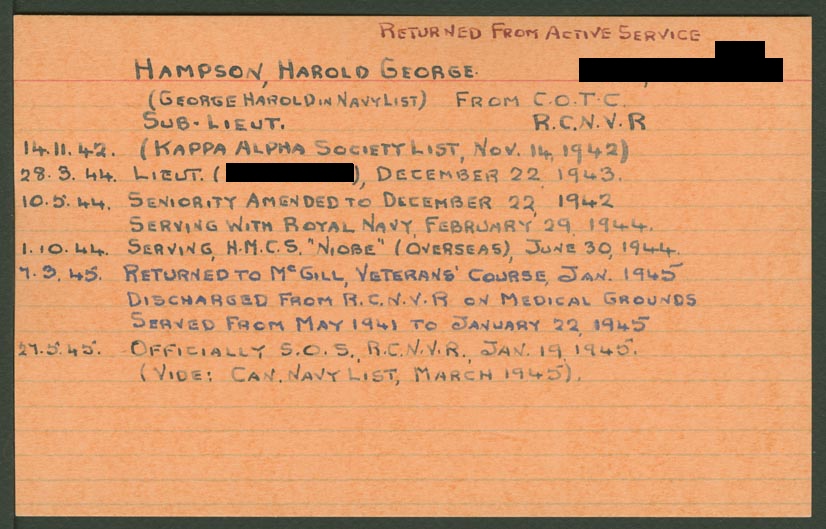 RETURNED FROM ACTIVE SERVICE
HAMPSON, HAROLD GEORGE.
(GEORGE HAROLD IN NAVY LIST) FROM C.O.T.C.
SUB-LIEUT. R.C.N.V.R
14.11.42. (KAPPA ALPHA SOCIETY LIST, NOV. 14, 1942)
28.3.44. LIEUT. ( ), DECEMBER 22, 1943.
10.5.44. SENIORITY AMENDED TO DECEMBER 22, 1942
SERVING WITH ROYAL NAVY, FEBRUARY 29, 1944.
1.10.44. SERVING, H.M.C.S. "NIOBE" (OVERSEAS), JUNE 30, 1944.
7.3.45. RETURNED TO McGILL, VETERANS' COURSE, JAN. 1945
DISCHARGED FROM R.C.N.V.R ON MEDICAL GROUNDS
SERVED FROM MAY 1941 TO JANUARY 22, 1945
27.5.45. OFFICIALLY S.O.S., R.C.N.V.R., JAN. 19, 1945.
(VIDE: CAN. NAVY LIST, MARCH 1945).